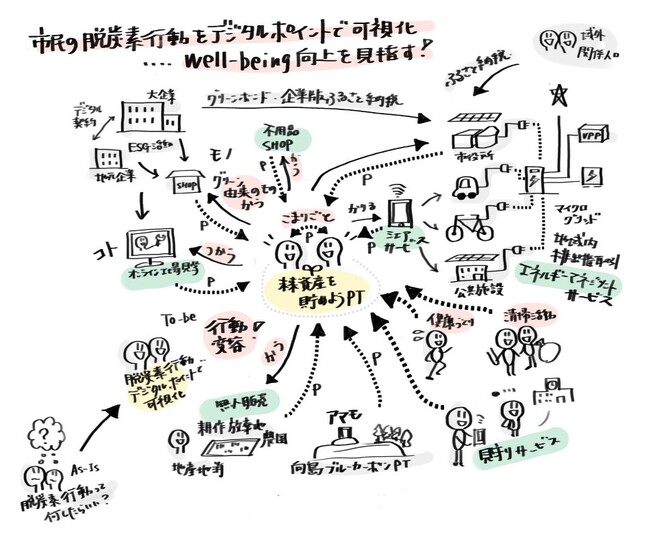 市民の脱炭素行動をデジタルポイントで可視化
.... well-being向上を見指す!
域外
関係人口
ふるさと納税
大企業
グリーンボンド・企業版ふるさと納税
デジタル
契約
ESG活動
地元企業
不用品
SHOP
P
かう
モノ
SHOP
グリーン
由来のもの
かう
P
市役所
P
VPP
こまりごと
P
かりる
P
シェアリング
サービス
マイクロ
グリッド
地域内
公共施設
エネルギーマネジメント
サービス
コト
オンライン工場見学
つかう
P
林資産を
貯めようPT
健康づくり
清掃活動
To-be
行動
変容
かう
脱炭素行動
デジタルポイントで
可視化
P
P
無人販売
耕作放棄地
農園
地産地消
アマモ
向島ブルーカーボンPT
見守りサービス
?
As-is
脱炭素行動って
何したらいい?